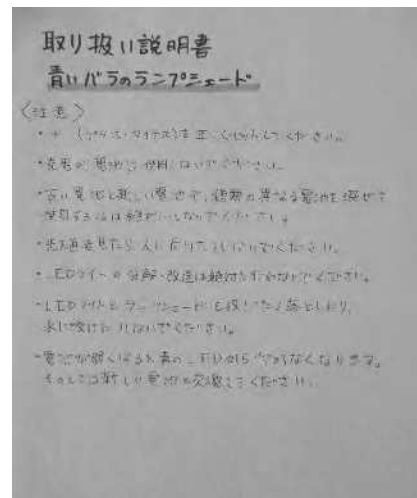 取り扱い説明書
青いバラのランプシェード
〈注意〉
・+-(プラス・マイナス)を正しく してください。
・ 電池は使用しないでください。
・古い電池と新しい電池や、種類の異なる電池を混ぜて
使用するのは絶対にしないでください。
・ ください。
・LEDライトの分解・改造は絶対に行わないでください。
・LEDライトとランプシェードを投げたり落としたり、
水に浸けたりしないでください。
・電池が弱くなると青のLEDから なくなります。
その は新しい電池に交換してください。